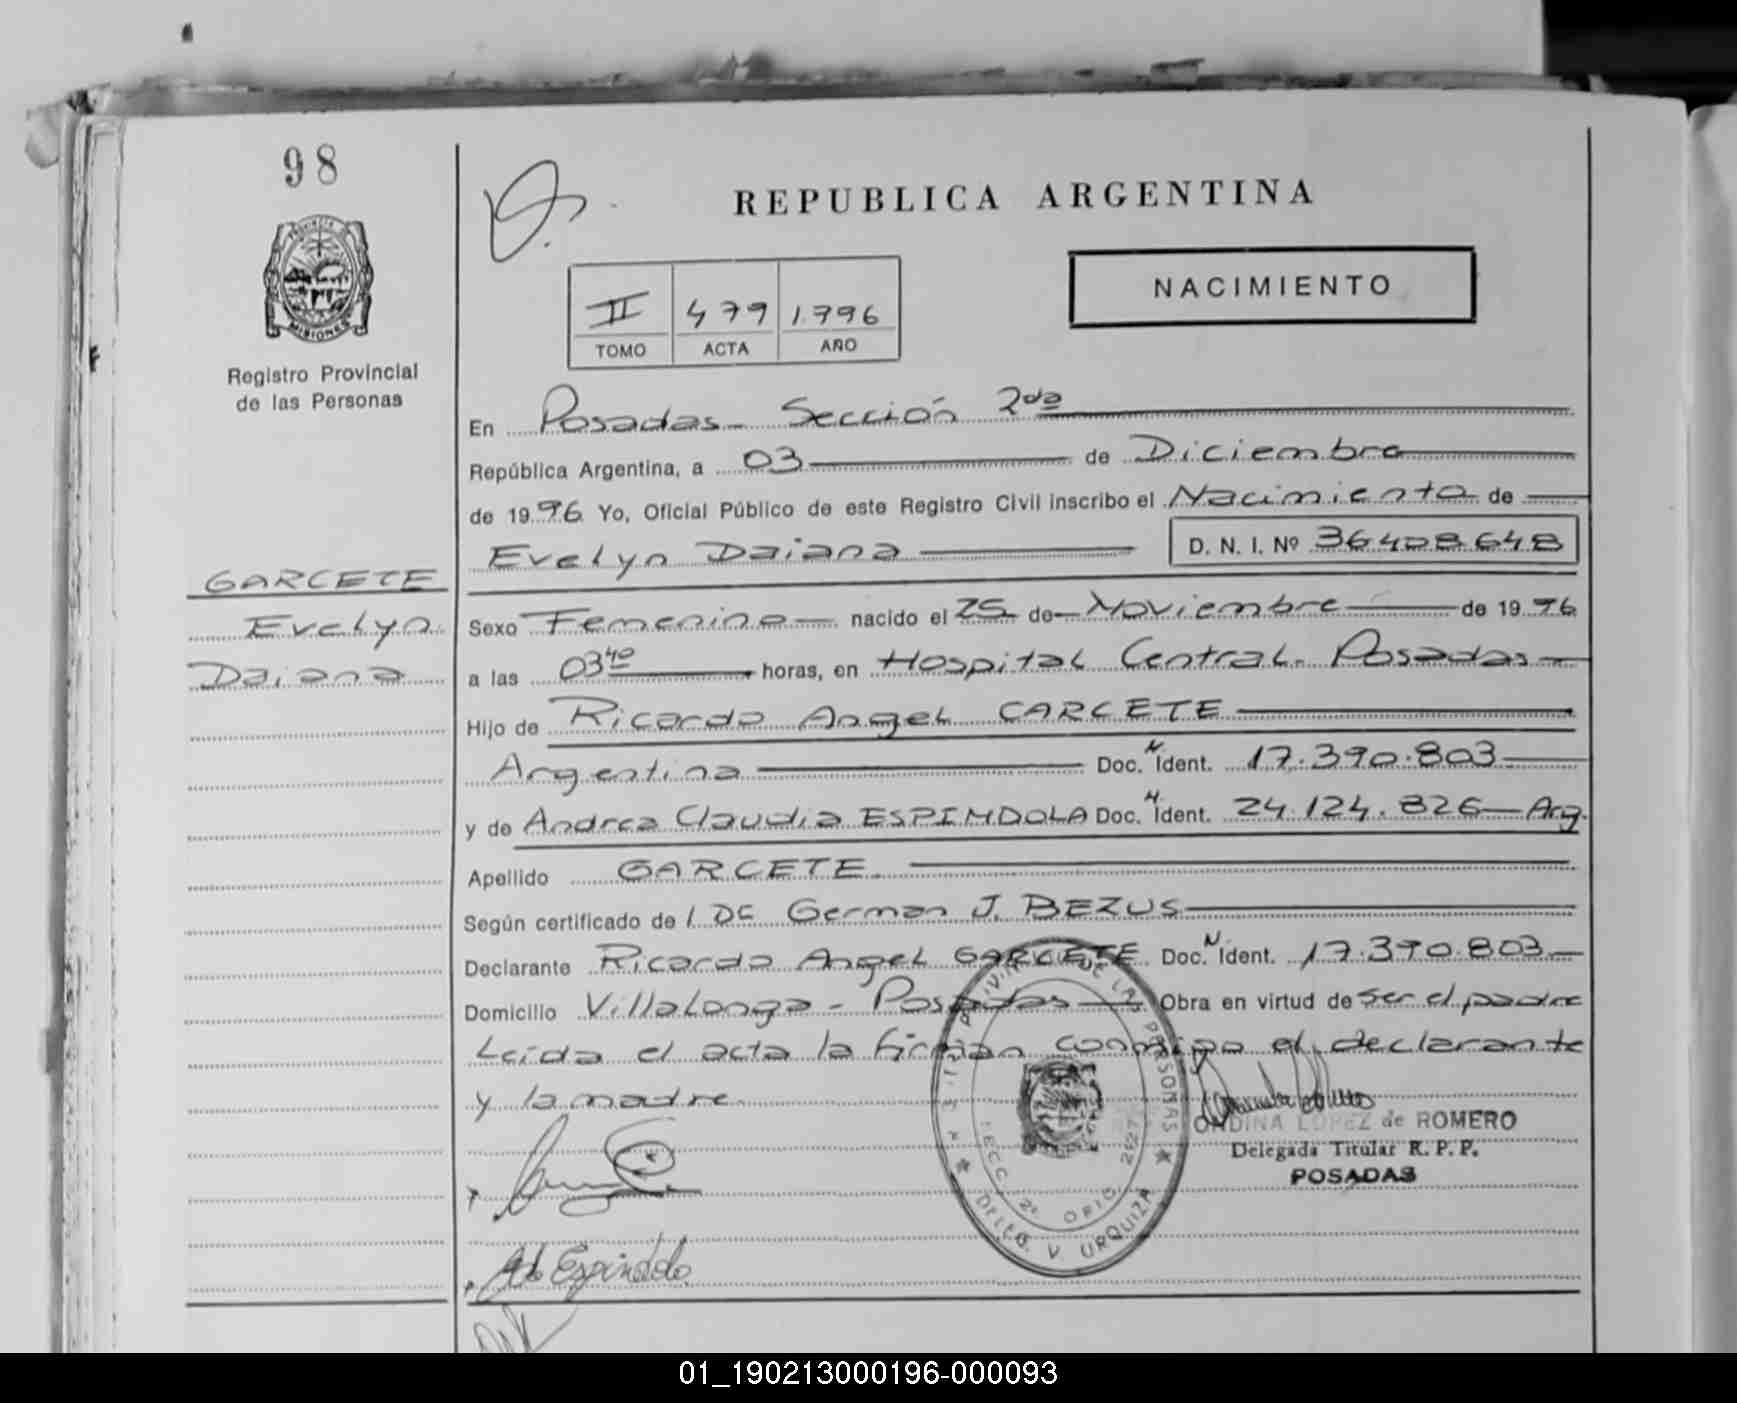 98
REPUBLICA ARGENTINA
PROVINCIA D
MISIONES
Registro Provincial
de las Personas
II 479 1.996
TOMO ACTA AÑO
NACIMIENTO
En Posadas - Sección 2da
República Argentina, a 03 de Diciembre
de 1996 Yo, Oficial Público de este Registro Civil inscribo el Nacimiento de
Evelyn Daiana D. N. I. Nº 36408648
GARCETE
Evelyn
Daiana
Sexo Femenino nacido el 25 de Noviembre de 1996
a las 03 40 horas, en Hospital Central - Posadas
Hijo de Ricardo Angel GARCETE
Argentina Doc. N Ident. 17.390.803
y de Andrea Claudia ESPINDOLA Doc. N Ident. 24.124.826 - Arg.
Apellido GARCETE
Según certificado de Dr German J. BEZUS
Declarante Ricardo Angel GARCETE Doc. N Ident. 17.390.803
Domicilio Villalonga - Posadas Obra en virtud de ser el padre
Leída el acta la firman conmigo el declarante
y la madre
ONDINA LOPEZ de ROMERO
Delegada Titular R. P. P.
POSADAS
DE LAS PERSONAS
SECC. 2ª OFIC 2627
DELEG. V URQUIZA
Espindola
01_190213000196-000093